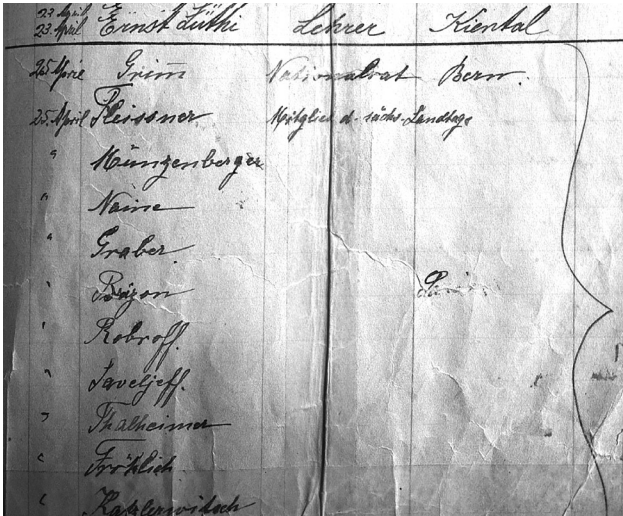 23. April Ernst Lüthi Lehrer Kiental
25 April Grim̄ Nationalrat Bern.
25. April Fleissner Mitglied d. sächs. Landtags
" Münzenberger
" Naine
" Graber
" Brizon
" Bobroff.
" Saveljeff.
" Thalheimer
" Fröhlich
" Katzlerowitsch